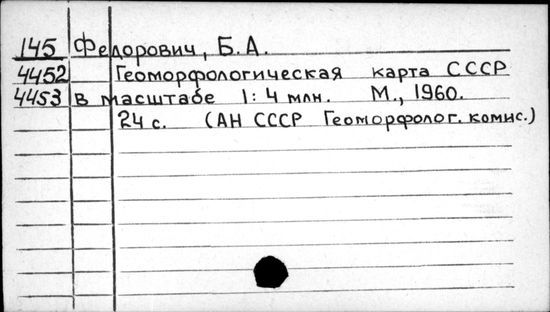 145 Федорович, Б. А.
4452 Геоморфологическая карта СССР
4453 в масштабе 1:4 млн. М., 1960.
24 с. (АН СССР Геоморфолог. комис.)